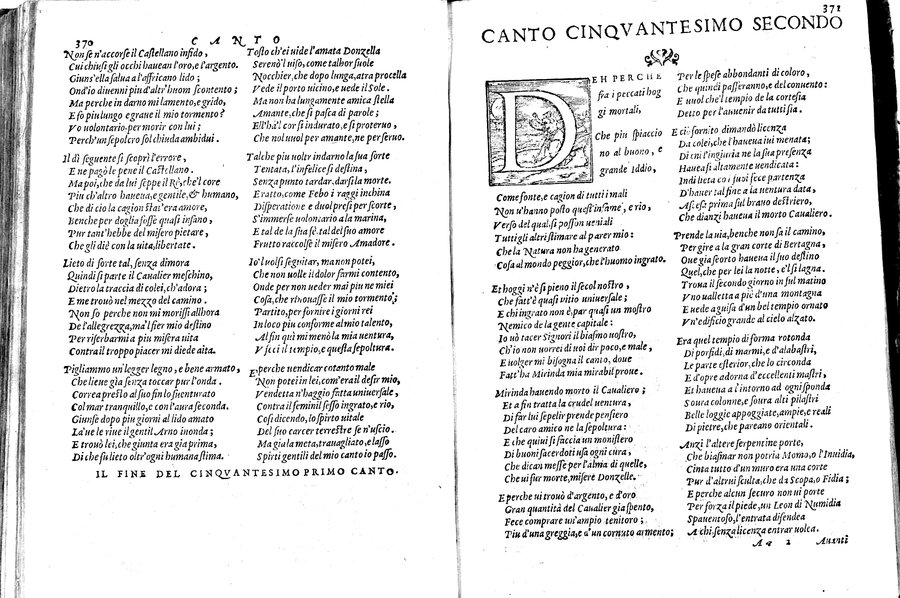 370 CANTO
Non se n'accorse il Castellano infido,
Cui chiusi gli occhi hauean l'oro, e l'argento.
Giuns'ella salua a l'affricano lido;
Ond'io diuenni piu d'altr'huom scontento;
Ma perche in darno mi lamento, e grido,
E fo piu lungo e graue il mio tormento?
Vo uolontario per morir con lui;
Perch'un sepolcro sol chiuda ambidui.
Il dì seguente si scoprì l'errore,
E ne pagò le pene il Castellano.
Ma poi, che da lui seppe il Rè, che'l core
Piu ch'altro hauea, e gentile, & humano,
Che di cio la cagion stat'era amore,
Benche per doglia fosse quasi insano,
Pur tant'hebbe del misero pietare,
Che gli diè con la uita, libertate.
Lieto di sorte tal, senza dimora
Quindi si parte il Caualier meschino,
Dietro la traccia di colei, ch'adora;
E me trouò nel mezzo del camino.
Non so perche non mi morissi allhora
De l'allegrezza, ma'l fier mio destino
Per riserbarmi a piu misera uita
Contra il troppo piacer mi diede aita.
Pigliammo un legger legno, e bene armato,
Che lieue già senza toccar pur l'onda.
Correa presto al suo fin lo suenturato
Col mar tranquillo, e con l'aura seconda.
Giunse dopo piu giorni al lido amato
Là 've le rive il gentil Arno inonda;
E trouò lei, che giunta era gia prima,
Di che fu lieto oltr'ogni humana stima.
Tosto ch'ei uide l'amata Donzella
Serenò'l uiso, come talhor suole
Nocchier, che dopo lunga, atra procella
Vede il porto uicino, e uede il Sole.
Ma non ha lungamente amica stella
Amante, che si pasca di parole;
Ell'hà'l cor sì indurato, e sì proteruo,
Che nol uuol per amante, ne per seruo.
Talche piu uoltr indarno la sua sorte
Tentata, l'infelice si destina,
Senza punto tardar, darsi la morte.
Eratto, come Febo i raggi inchina
Disperatione e duol presi per scorte,
S'immerse uolontario a la marina,
E tal de la sua fè, tal del suo amore
Frutto raccolse il misero Amadore.
Io'l uolsi seguitar, ma non potei,
Che non uolle il dolor farmi contento,
Onde per non ueder mai piu ne miei
Cosa, che rinouasse il mio tormento;
Partito, per fornire i giorni rei
In loco piu conforme al mio talento,
Al fin quì mi menò la mia uentura,
V feci il tempio, e questa sepoltura.
E perche uendicar cotanto male
Non potei in lei, com'era il desir mio,
Vendetta n'haggio fatta uniuersale,
Contra il feminil sesso ingrato, e rio,
Così dicendo, lo spirto uitale
Del suo carcer terrestre se n'uscìo.
Ma gia la meta, trauagliato, e lasso
Spirti gentili del mio canto io passo.
IL FINE DEL CINQVANTESIMO PRIMO CANTO.
371
CANTO CINQVANTESIMO SECONDO
DEH PERCHE
fra i peccati hoggi
gi mortali,
Che piu spiaccio
no al buono, e
grande Iddio,
Come fonte, e cagion di tutti i mali
Non u'hanno posto quest'infame, e rio,
Verso del qual, si posson ueniali
Tutti gli altri stimar al parer mio:
Che la Natura non ha generato
Cosa al mondo peggior, che l'huomo ingrato.
Et hoggi n'è sì pieno il secol nostro,
Che fatt'è quasi vitio uniuersale;
E chi ingrato non è, par quasi un mostro
Nemico de la gente capitale:
Io uò tacer Signori il biasmo uostro,
Ch'io non uorrei di uoi dir poco, e male,
E uolger mi bisogna il canto, doue
Fatt'ha Mirinda mia mirabil proue.
Mirinda hauendo morto il Caualiero;
Et a fin tratta la crudel uentura,
Di far lui sepelir prende pensiero
Del caro amico ne la sepoltura:
E che quiui si faccia un monistero
Di buoni sacerdoti usa ogni cura,
Che dican messe per l'alma di quelle,
Che ui fur morte, misere Donzelle.
E perche ui trouò d'argento, e d'oro
Gran quantità del Caualier gia spento,
Fece comprare un'ampio tenitoro;
Piu d'una greggia, e d'un cornuto armento;
Per le spese abbondanti di coloro,
Che quindi passeranno, e del conuento:
E uuol che'l tempio de la cortesia
Detto per l'auuenir da tutti sia.
E ciò fornito dimandò licenza
Da colei, che l'haueua iui menata;
Di cui l'ingiuria ne la sua presenza
Hauea sì altamente uendicata:
Indi lieta con suoi fece partenza
D'hauer tal fine a la uentura data,
Ascesa prima sul brauo destriero,
Che dianzi haueua il morto Caualiero.
Prende la uia, benche non sa il camino,
Per gire a la gran corte di Bertagna,
Oue gia scorto haueua il suo destino
Quel, che per lei la notte, e'l dì si lagna.
Troua il secondo giorno in sul matino
Vn ualletto a piè d'una montagna
E uede a guisa d'un bel tempio ornato
Vn'edificio grande al cielo alzato.
Era quel tempio di forma rotonda
Di porfidi, di marmi, e d'alabastri,
Le parte esterior, che lo circonda
E d'opre adorna d'eccellenti mastri,
Et haueua a l'intorno ad ogni sponda
Soura colonne, e soura alti pilastri
Belle loggie appoggiate, ampie, e reali
Di pietre, che pareano orientali.
Anzi l'altere serpentine porte,
Che biasmar non potria Momo, o l'Inuidia,
Cinta tutto d'un muro era una corte
Pur d'altrui sculta, che da Scopa, o Fidia;
E perche alcun securo non ui porte
Per forza il piede, un Leon di Numidia
Spauentoso, l'entrata difendea
A chi senza licenza entrar uolea.
Aa 2 Auanti